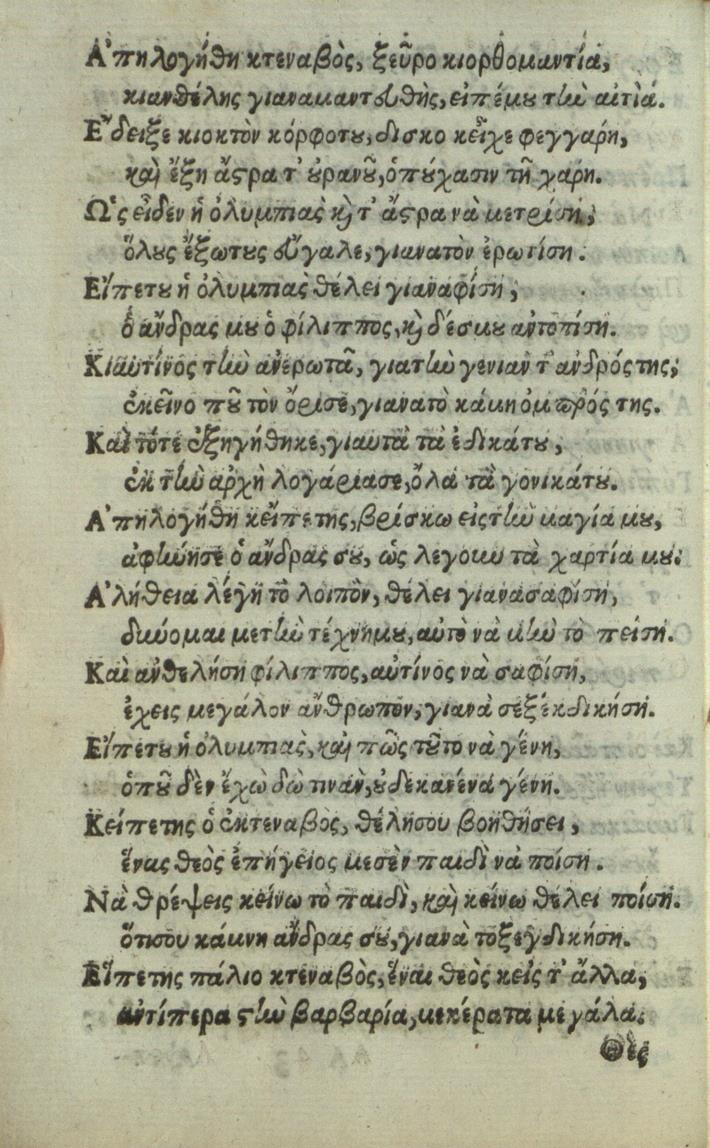 Ἀπηλογήθη κτεναβὸς, ξεῦρο κιορθομαντία,
κιανθέλης γιαναμαντευθῆς, εἰπέμου τὴν αἰτιά.
Ἔδειξε κιοκτὸν κόρφοτου, δισκο κεῖχε φεγγαρη,
καὶ ἔξη ἄστρα τ' οὐρανοῦ, ὁπύχασιν τῆ χαρη.
Ὡς εἶδεν ἡ ὀλυμπιας κὴ τ' ἄστρα νὰ μετρίση,
ὅλους ἔξωτους εὔγαλε, γιανατὸν ἐρωτίση.
Εἴπετου ἡ ὀλυμπιας θέλει γιαναφίση,
ὁ ἄνδρας μου ὁ φίλιππος, κὴ δέσμου αντοπίση.
Κιαυτίνος τὴν ἀνερωτᾶ, γιατὴν γενιαν τ' ἀνδρός της,
ἐκεῖνο ποῦ τὸν ὅρισε, γιανατὸ κάμη ὀμπρός της.
Καὶ τότε ἐξηγήθηκε, γιαυτα τα ἐδικάτου,
ἐκ τὴν ἀρχὴ λογάριασε, ὅλα τὰ γονικάτου.
Ἀπηλογήθη κεἴπε της, βρίσκω εἰς τὴν μαγία μου,
αφήνησε ὁ ἄνδρας σου, ὡς λεγουν τὰ χαρτία μου.
Ἀλήθεια λέγη τὸ λοιπὸν, θέλει γιανασαφίση,
δινώομαι μετὴν τέχνημου, αὐτὸ νὰ μὴν τὸ πείση.
Καὶ ανθελήση φίλιππος, αὐτίνος νὰ σαφίση,
ἐχεις μεγάλον ἄνθρωπον, γιανὰ σεξέκδικήση.
Εἴπετου ἡ ὀλυμπιας, καὶ πῶς τοῦτο νὰ γένη,
ὁποῦ δὲν ἔχω δῶ τιναν, οὐδεκανένα γένη.
Κείπετης ὁ ἐκτεναβὸς, θέλησου βοηθήσει,
ἕνας θεὸς ἐπήγειος μεσὲν παιδὶ νὰ ποίση.
Νὰ θρέψεις κείνω τὸ παιδὶ, καὶ κείνω θέλει ποίση.
ὅτισου κάμνη ἄνδρας σου, γιανὰ τοξεγδικήση.
Εἴπετης πάλιο κτεναβὸς, ἕναι θεὸς κεὶς τ' ἄλλα,
ἀντίπερα στὴν βαρβαρία, μεκέρατα μεγάλα.
Θὲς